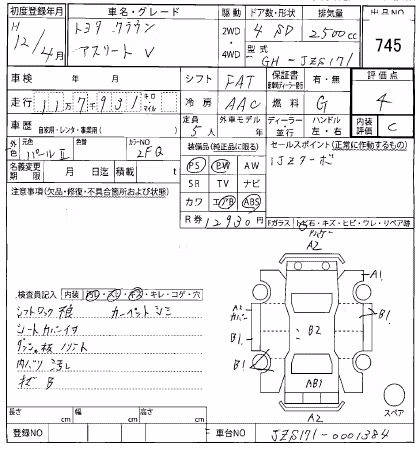 初度登録年月 車名・グレード 駆動 ドア数・形状 排気量 出品NO
H 12/4月 トヨタ クラウン 2WD・4WD 4 SD 2500cc 745
アスリート V 型式 GH-JZS171
車検 年 月 シフト FAT 保証書 有・無 評価点
走行 117931 キロ マイル 冷房 AAC 燃料 G 4
車歴 自家用・レンタ・事業用( ) 定員 5人 外車モデル 年 ディーラー・並行 ハンドル 左・右 内装評価 C
外色 元色 パールII 色替 カラーNO 2FQ 装備品(純正品に限る) セールスポイント(正常に作動するもの)
名義変更期限 月 日迄 積載 t PS PW AW 1JZターボ
注意事項(欠品・修復・不具合箇所および状態) SR TV ナビ
カワ エアB ABS
R券 12930円 Fガラス トビ石・キズ・ヒビ・ワレ・リペア跡
A2
A1
検査員記入 内装 キレ・コゲ・穴
A2
B1
B2
B1
B1
シートカバーイタ
キズ B
AB1
スペア
A2
長さ cm 幅 cm 高さ cm
登録NO 車台NO JZS171-0001384